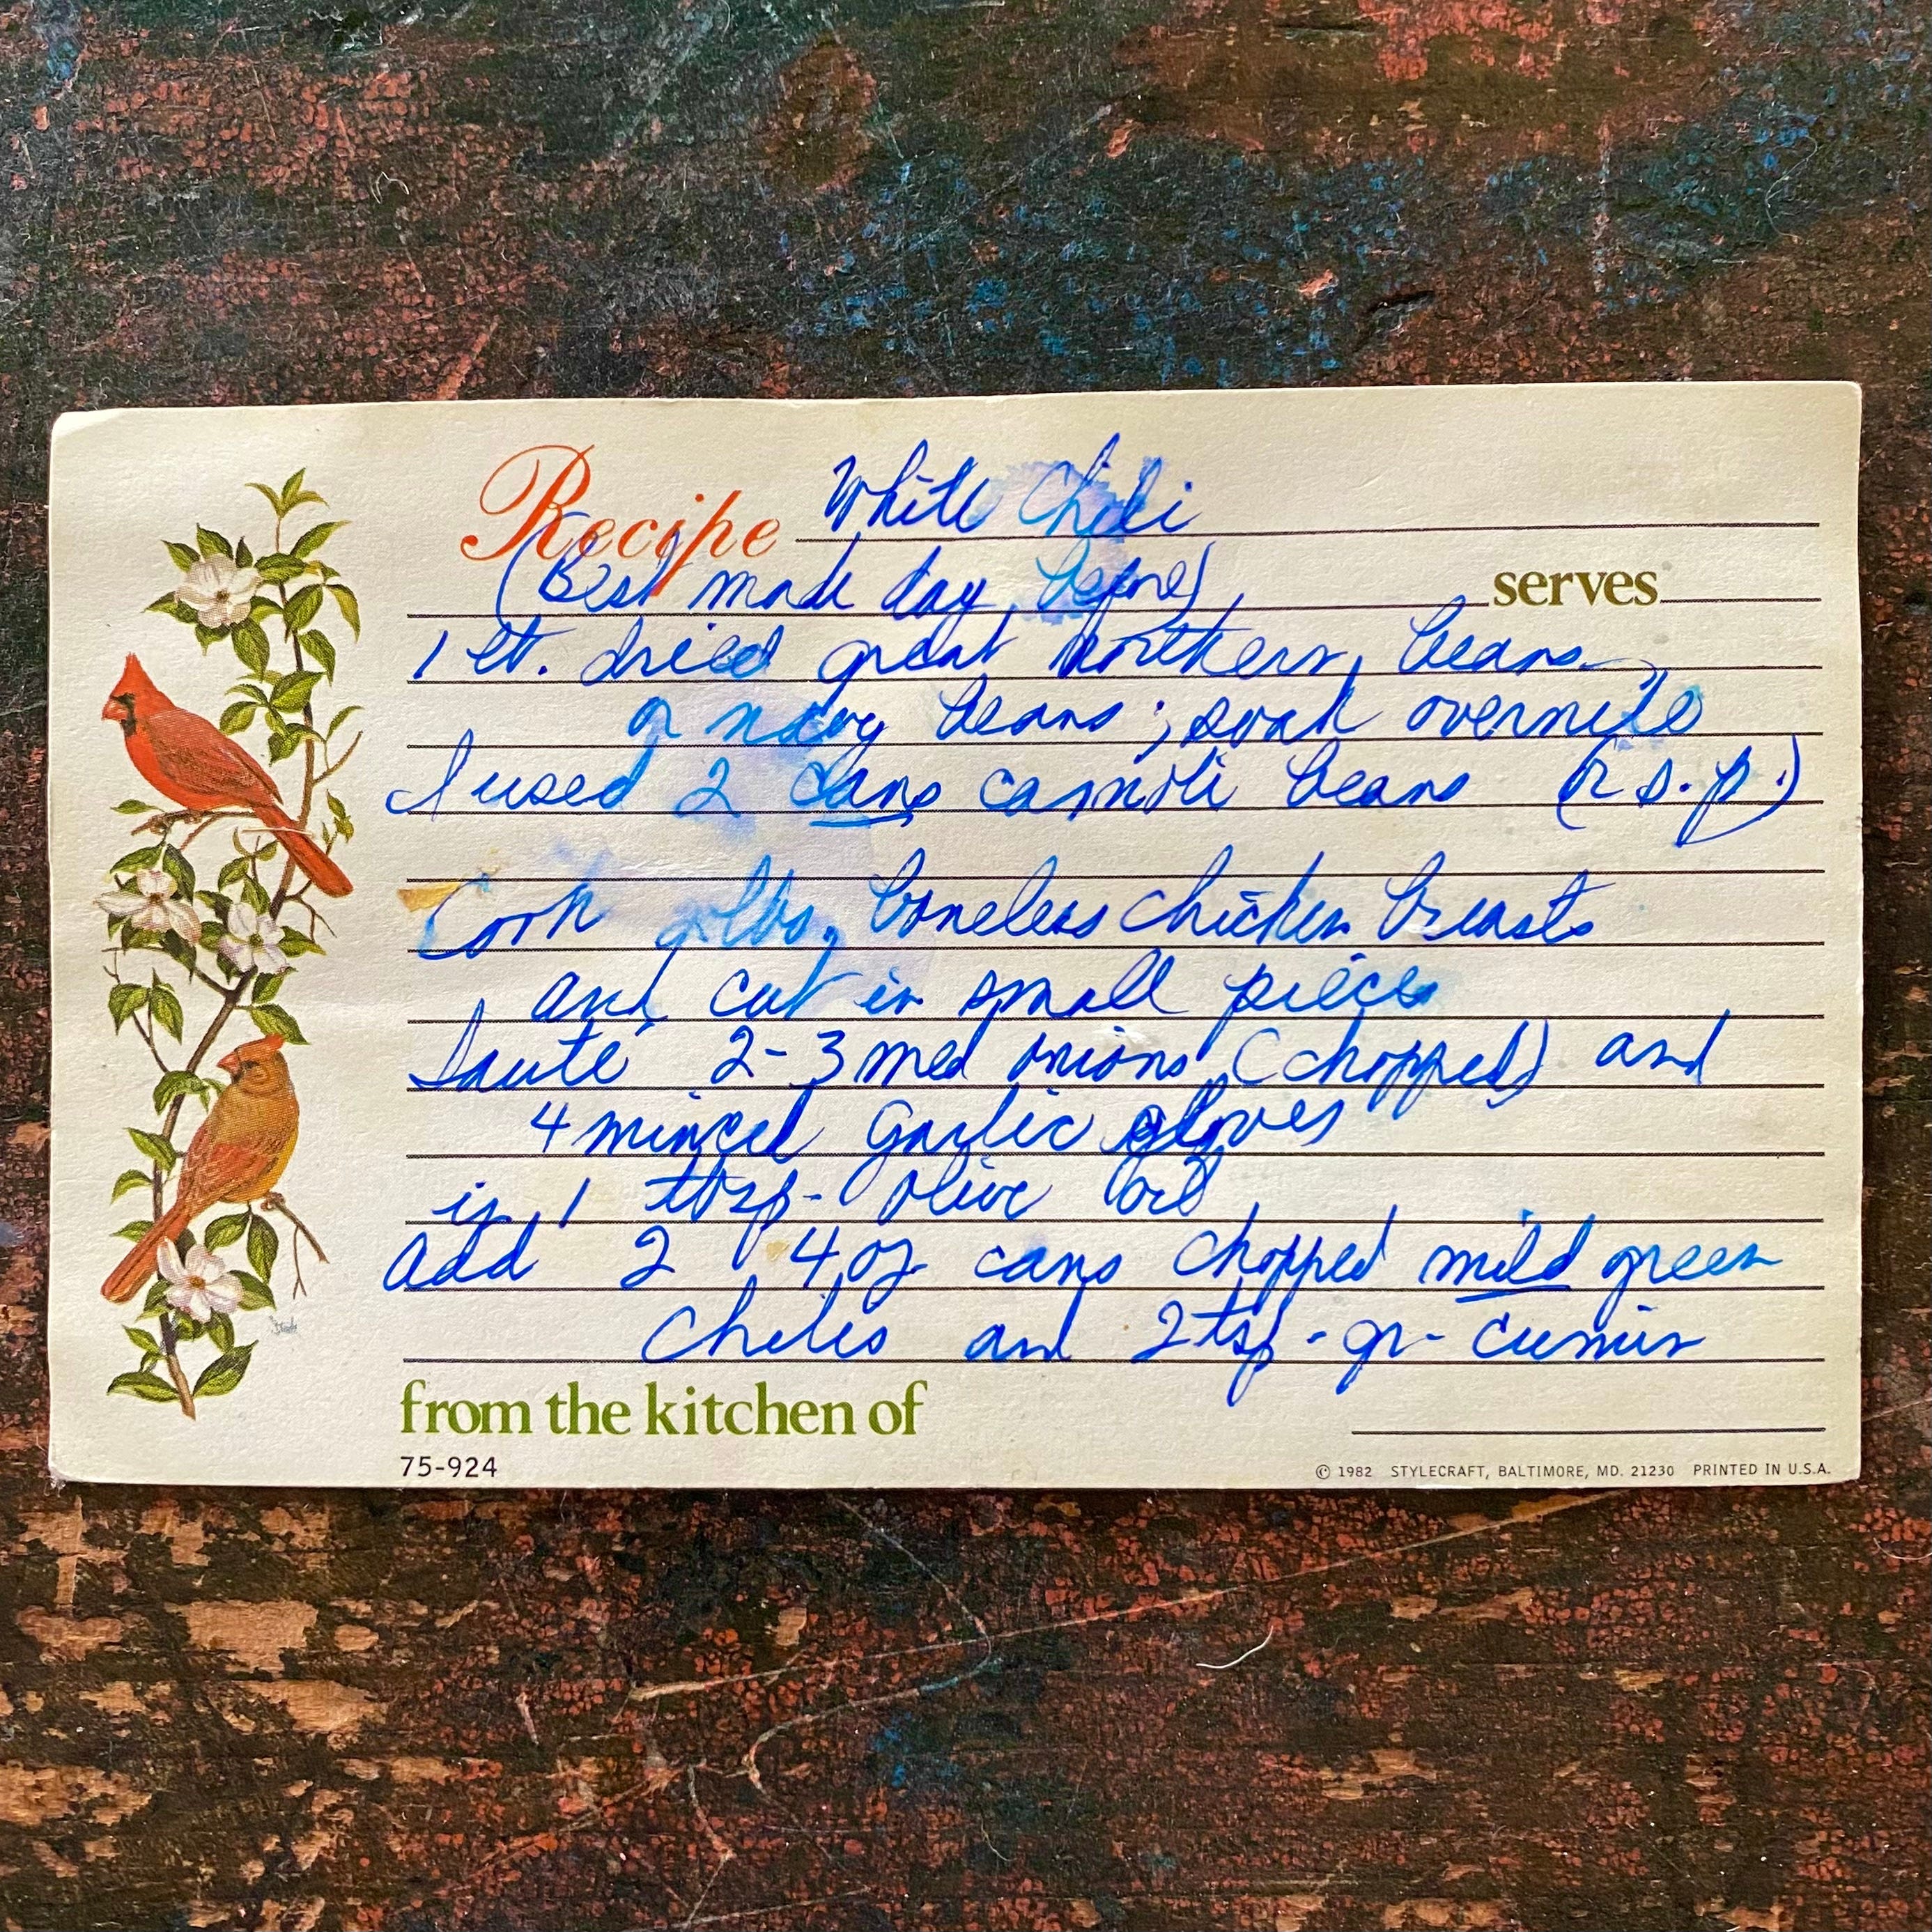 Recipe White Chili
(Best made day before) serves
1 lb. dried great northern beans
or navy beans; soak overnite
I used 2 cans cannoli beans (r s. p.)
Cook 2 lbs. boneless chicken breasts
and cut in small pieces
Sauté 2-3 med onions (chopped) and
4 minced garlic cloves
in 1 tbsp- olive oil
add 2 4 oz cans chopped mild green
chiles and 2 tsp- gr- cumin
from the kitchen of
75-924
© 1982 STYLECRAFT, BALTIMORE, MD. 21230 PRINTED IN U.S.A.